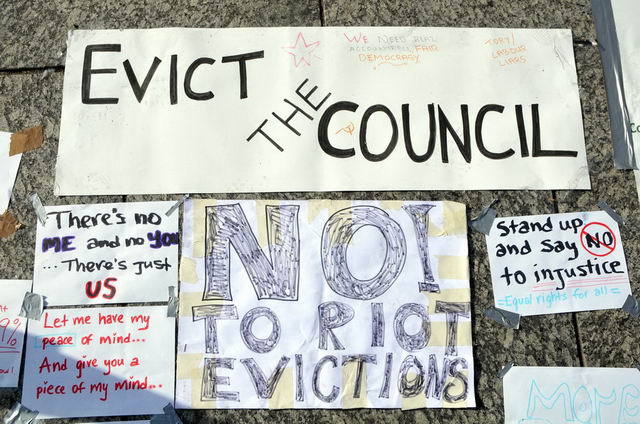 EVICT
THE
COUNCIL
WE NEED REAL
ACCOUNTABLE FAIR
DEMOCRACY
TORY/
LABOUR
LIARS
There's no
ME and no YOU
... There's just
US
NO!
TO RIOT
EVICTIONS
Stand up
and say NO
to injustice
=Equal rights for all=
Let me have my
peace of mind...
And give you a
piece of my mind...
9%
MORE